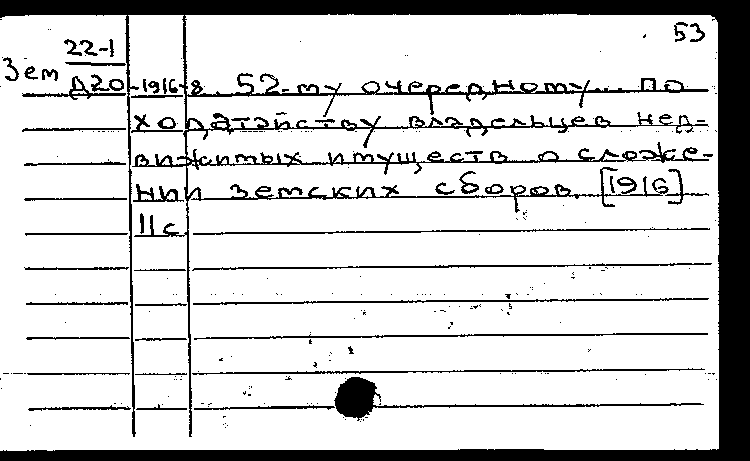 53
22-1
Зем Д20-1916-8. 52-му очередному... по
ходатайству владельцев нед=
вижимых имуществ о сложе-
нии земских сборов. [1916]
11с